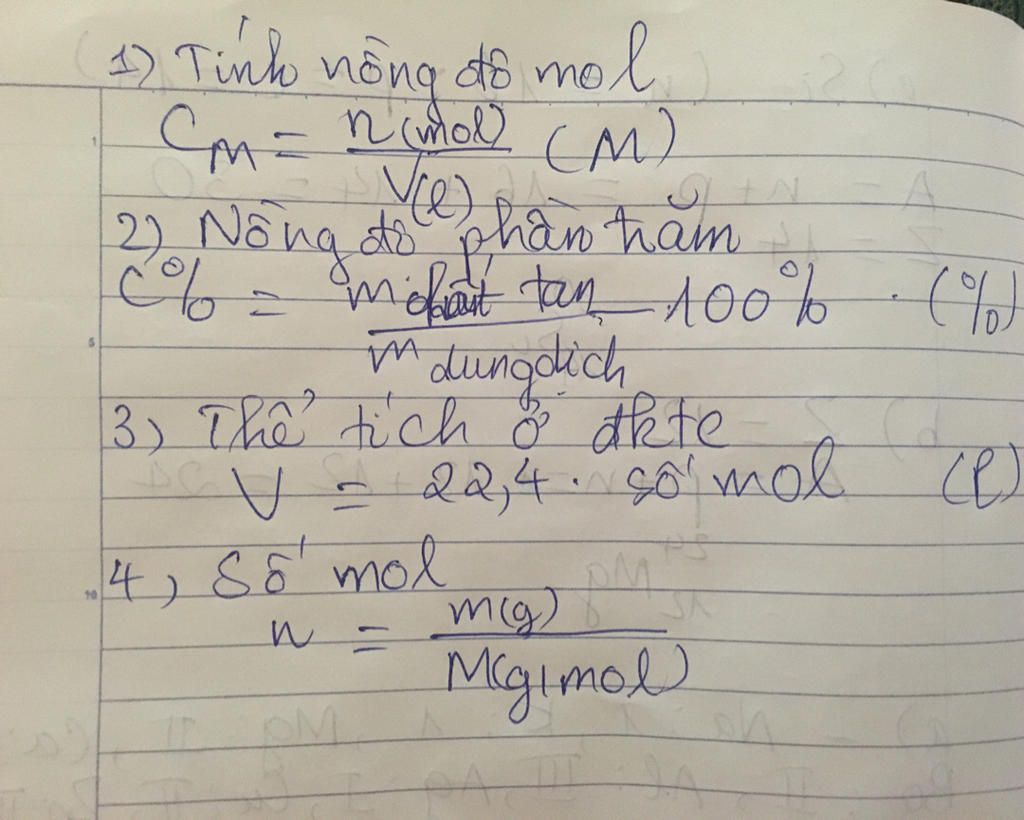 1) Tính nồng độ mol
C_M = n(mol) / V(l) (M)
2) Nồng độ phần trăm
C% = m chất tan / m dung dịch . 100% . (%)
3) Thể tích ở đktc
V = 22,4 . số mol (l)
4) Số mol
n = m(g) / M(g/mol)